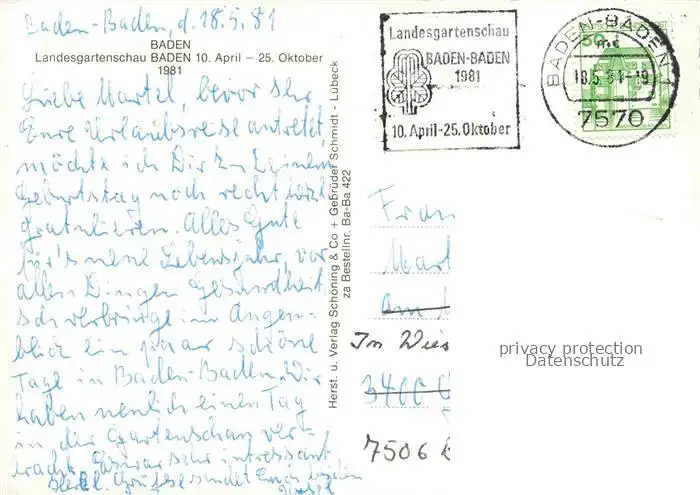 Baden-Baden, d. 18.5.81
BADEN
Landesgartenschau BADEN 10. April – 25. Oktober
1981
Liebe Martel, bevor Ihr
Eure Urlaubsreise antretet,
möchte ich Dir zu Deinem
Geburtstag noch recht herzl.
gratulieren. Alles Gute
für's neue Lebensjahr, vor
allen Dingen Gesundheit
Ich verbringe im Augen-
blick ein paar schöne
Tage in Baden-Baden. Wir
haben neulich einen Tag
in der Gartenschau ver-
bracht. Es war sehr interessant
Herzl. Grüße sendet Euch beiden
Herst. u. Verlag Schöning & Co + Gebrüder Schmidt - Lübeck
za Bestellnr. Ba-Ba 422
Landesgartenschau
BADEN-BADEN
1981
10. April-25. Oktober
BADEN-BADEN 1
mc
18.5.81-19
7570
50
Frau
Mart
am
In Wies
3400
7506
privacy protection
Datenschutz